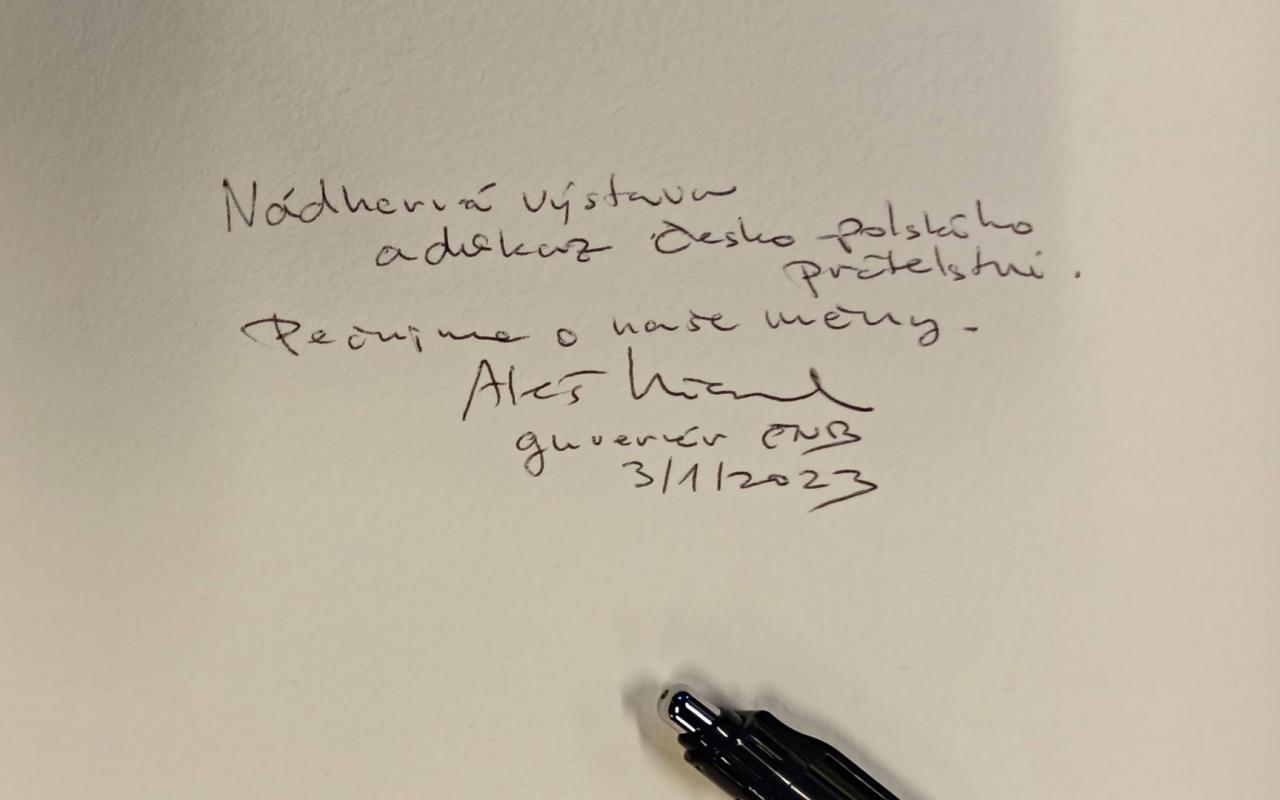 Nádherná výstava
a důkaz česko-polského
přátelství.
Pečujme o naše měny.
Aleš Michl
guvernér ČNB
3/1/2023